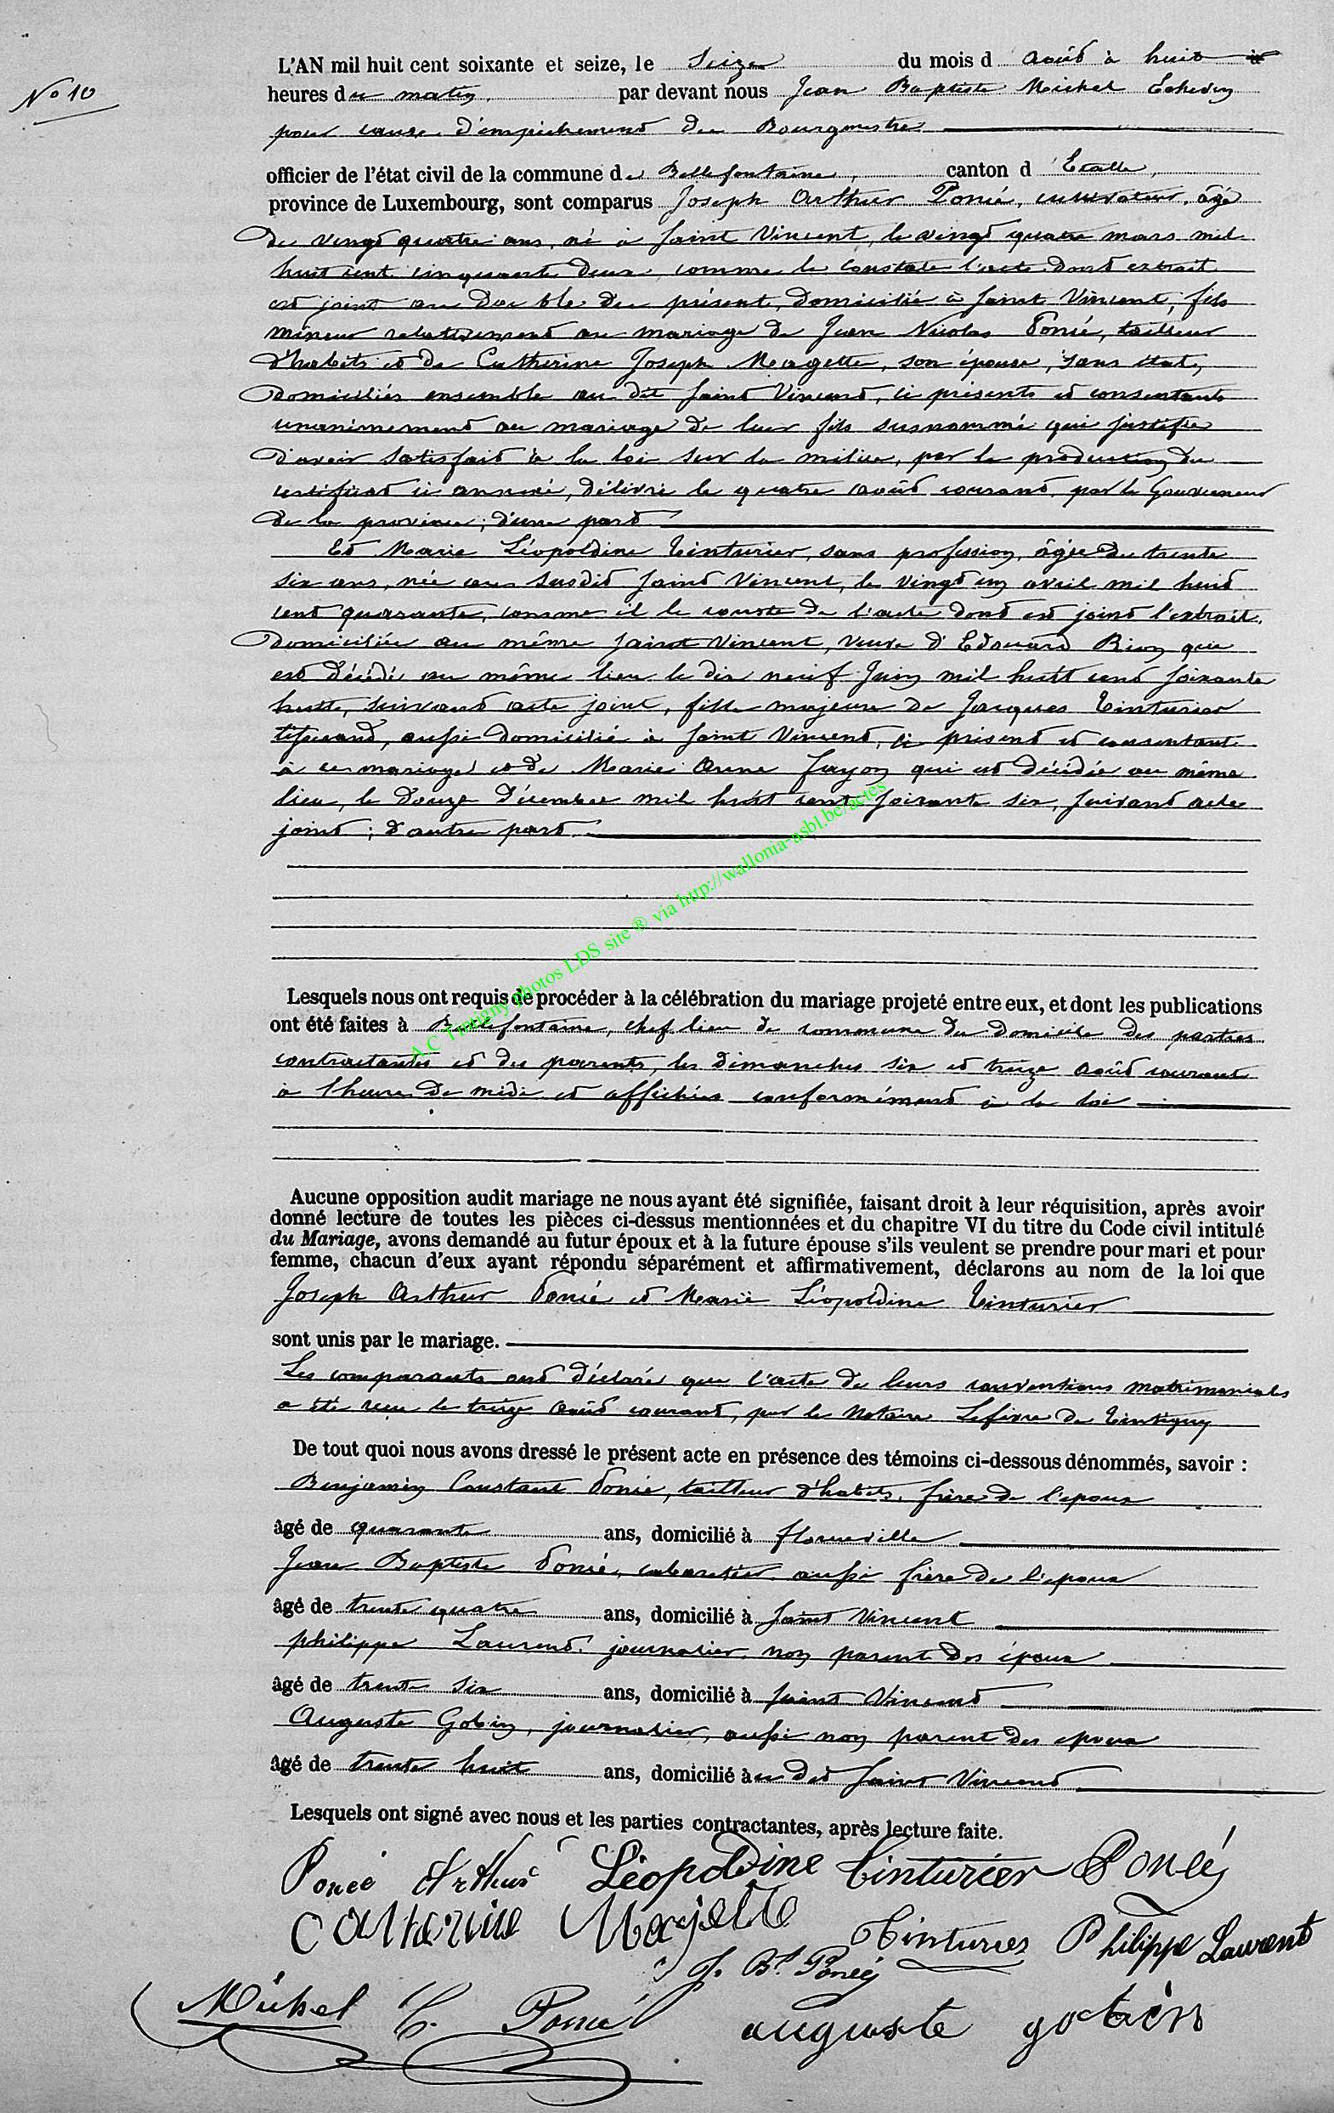 No 10
L'AN mil huit cent soixante et seize, le Seize du mois d août à huit
heures du matin par devant nous Jean Baptiste Michel Echevin
pour cause d'empêchement du Bourgmestre
officier de l'état civil de la commune de Bellefontaine, canton d'Etalle,
province de Luxembourg, sont comparus Joseph Arthur Poncé, cultivateur, âgé
de vingt quatre ans, né à Saint Vincent, le vingt quatre mars mil
huit cent cinquante deux, comme le constate l'acte dont extrait
est joint au double du présent, domicilié à Saint Vincent, fils
mineur relativement au mariage de Jean Nicolas Poncé, tailleur
d'habits et de Catherine Joseph Magette, son épouse, sans état,
domiciliés ensemble au dit Saint Vincent, ci présents et consentants
unanimement au mariage de leur fils susnommé qui justifie
d'avoir satisfait à la loi sur la milice, par la production du
certificat ci annexé, délivré le quatre août courant, par le Gouverneur
de la province; d'une part
Et Marie Léopoldine Tinturier, sans profession, âgée de trente
six ans, née au susdit Saint Vincent, le vingt un avril mil huit
cent quarante, comme il le conste de l'acte dont est joint l'extrait,
domiciliée au même Saint Vincent, veuve d'Edouard Bion qui
est décédé au même lieu le dix neuf Juin mil huit cent soixante
huit, suivant acte joint, fille majeure de Jacques Tinturier
tisserand, aussi domicilié à Saint Vincent, ci présent et consentant
à ce mariage et de Marie Anne Fayon qui est décédée au même
lieu, le douze décembre mil huit cent soixante six, suivant acte
joint; d'autre part.
A.C Tintigny photos LDS site ® via http://wallonia-asbl.be/actes
Lesquels nous ont requis de procéder à la célébration du mariage projeté entre eux, et dont les publications
ont été faites à Bellefontaine, chef lieu de commune du domicile des parties
contractantes et des parents, les dimanches six et treize août courant
à l'heure de midi et affichées conformément à la loi
Aucune opposition audit mariage ne nous ayant été signifiée, faisant droit à leur réquisition, après avoir
donné lecture de toutes les pièces ci-dessus mentionnées et du chapitre VI du titre du Code civil intitulé
du Mariage, avons demandé au futur époux et à la future épouse s'ils veulent se prendre pour mari et pour
femme, chacun d'eux ayant répondu séparément et affirmativement, déclarons au nom de la loi que
Joseph Arthur Poncé et Marie Léopoldine Tinturier
sont unis par le mariage.
Les comparants ont déclaré que l'acte de leurs conventions matrimoniales
a été reçu le treize août courant, par le Notaire Lefèvre de Tintigny
De tout quoi nous avons dressé le présent acte en présence des témoins ci-dessous dénommés, savoir :
Benjamin Constant Poncé, tailleur d'habits, frère de l'époux
âgé de quarante ans, domicilié à Florenville
Jean Baptiste Poncé, cabaretier, aussi frère de l'époux
âgé de trente quatre ans, domicilié à Saint Vincent
philippe Laurent, journalier, non parent des époux
âgé de trente six ans, domicilié à Saint Vincent
Auguste Gobin, journalier, aussi non parent des époux
âgé de trente huit ans, domicilié au dit Saint Vincent
Lesquels ont signé avec nous et les parties contractantes, après lecture faite.
Poncé Arthur Léopoldine Tinturier Poncé
Catherine Magette Tinturier Philippe Laurent
J. Bt Poncé
Michel C. Poncé auguste gobin